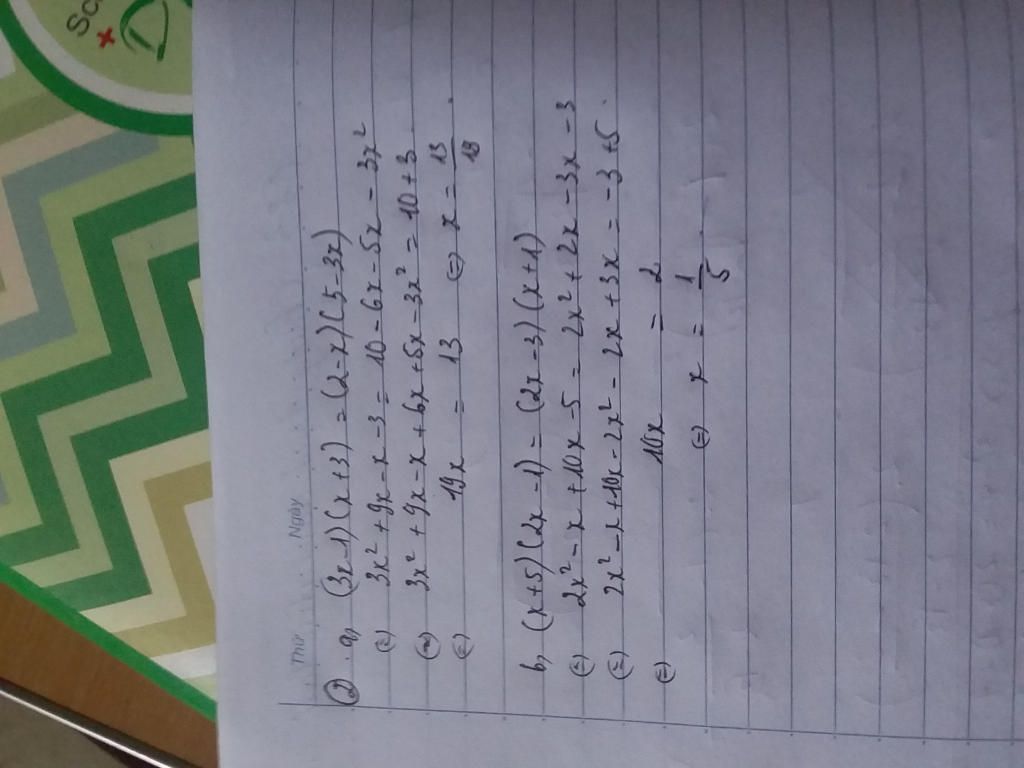 Thứ Ngày
② a, (3x-1)(x+3) = (2-x)(5-3x)
(=) 3x² + 9x - x - 3 = 10 - 6x - 5x - 3x²
(=) 3x² + 9x - x + 6x + 5x - 3x² = 10 + 3
(=) 19x = 13 (=) x = 13/19
b, (x+5)(2x-1) = (2x-3)(x+1)
(=) 2x² - x + 10x - 5 = 2x² + 2x - 3x - 3
(=) 2x² - x + 10x - 2x² - 2x + 3x = -3 + 5
(=) 10x = 2
(=) x = 1/5